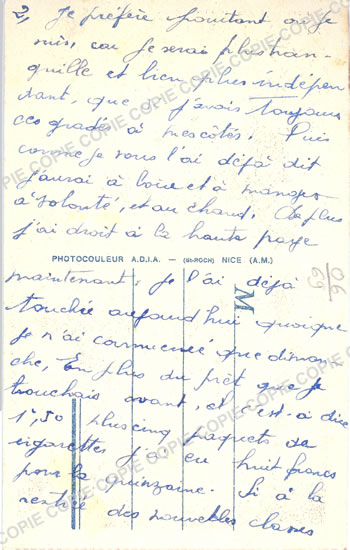 2, Je préfère pourtant où je
suis, car je serai plus tran-
quille et bien plus indépen
dant, que si j'avais toujours
ces gradés à mes côtés. Puis
comme je vous l'ai déjà dit
j'aurai à boire et à manger
à volonté, et au chaud. De plus
j'ai droit à la haute paye
PHOTOCOULEUR A.D.I.A. — (St-ROCH) NICE (A.M.)
maintenant. Je l'ai déjà
touchée aujourd'hui quoique
je n'ai commencé que diman
che, En plus du prêt que je
touchais avant, et c'est-à dire
1f,50 plus cinq paquets de
cigarettes j'ai eu huit francs
pour la quinzaine. Si à la
rentrée des nouvelles classes
M
COPIE COPIE COPIE COPIE